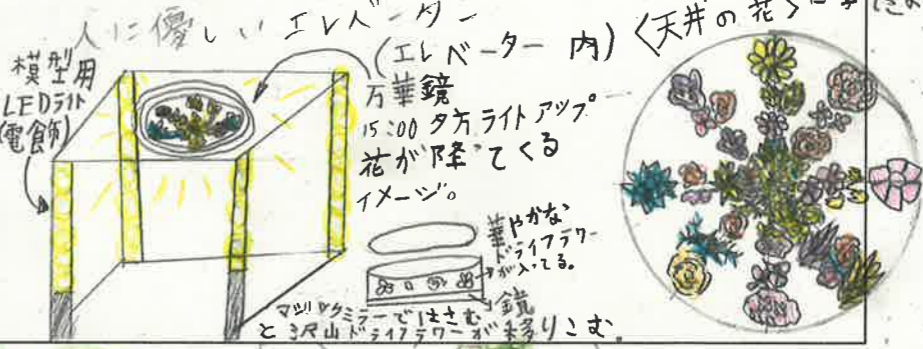 人に優しいエレベーター
(エレベーター内)
〈天井の花〉
模型用
LEDライト
(電飾)
万華鏡
15:00 夕方ライトアップ
花が降ってくる
イメージ。
華やかな
ドライフラワー
が入ってる。
鏡
マジックミラーではさむ
と沢山ドライフラワーが移りこむ。